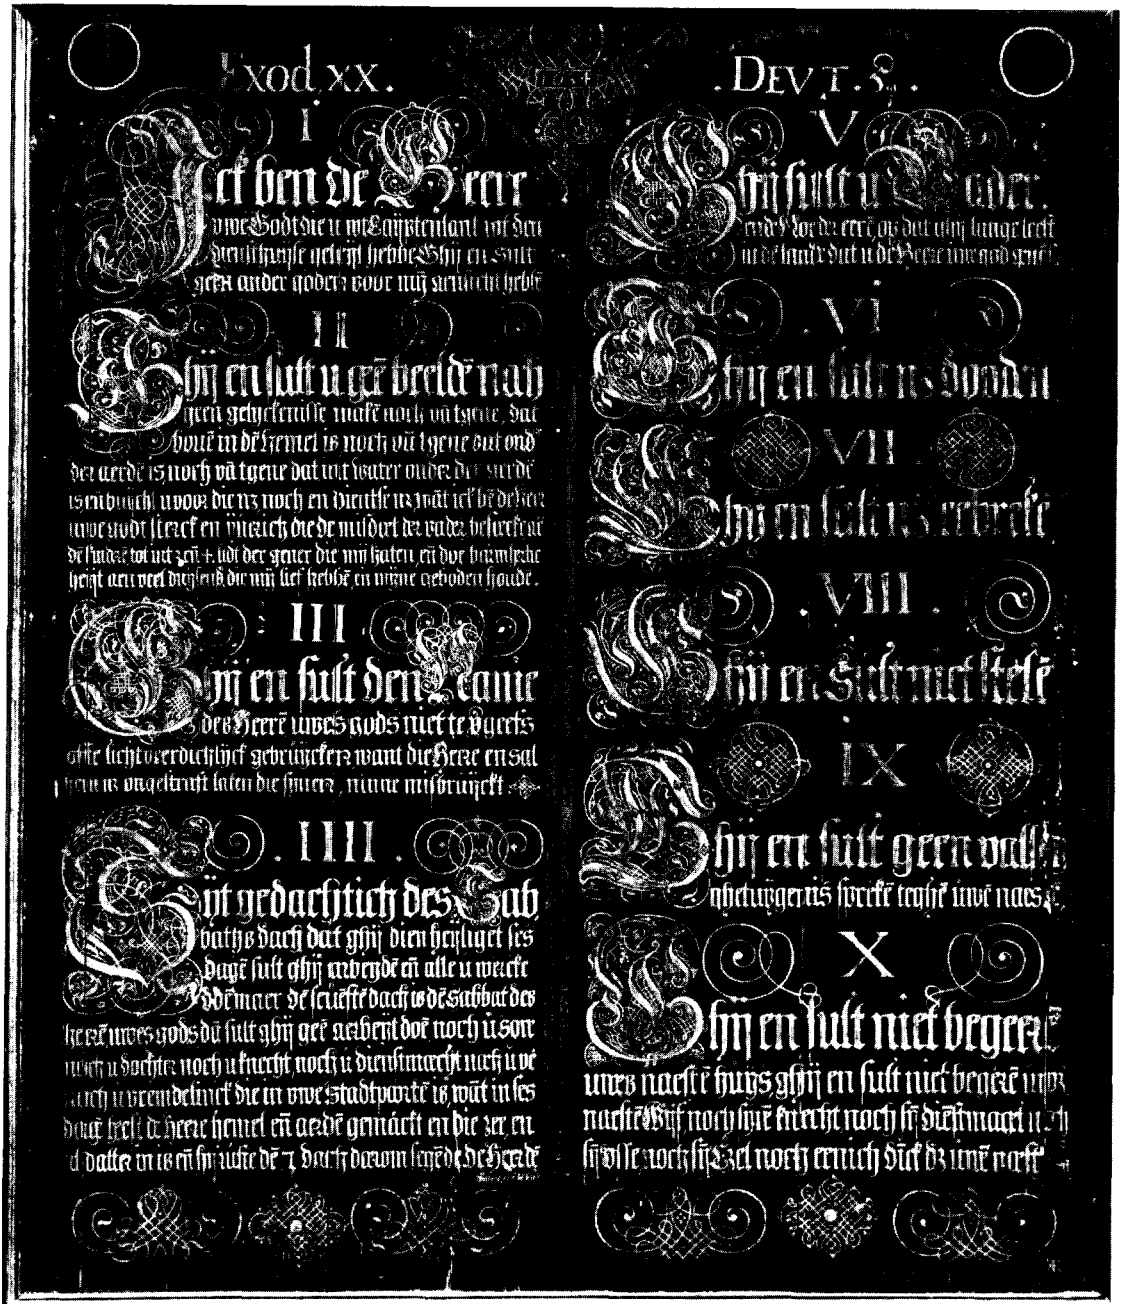 Exod. xx.
I
Ick ben de Heere
uwe Godt die u wt Egÿptenlant wt den
diensthuÿse geleÿt hebbe Ghij en sult
geen ander goden voor mij hebbē
II
Ghij en sult u geē beeldē noch
geen gelyckenisse makē noch vā tgene dat
bouē in dē hemel is noch vā tgene dat ond
der aerdē is noch vā tgene dat int water onder der aerdē
is en buÿcht u voor die nz noch en dientse nz wāt ick bē de heer
uwe godt sterck en ÿurich die de misdaet der vader besoeckt aē
dē kinderē tot int en lidt der gener die mij haten, eñ doe
aen veel duÿsent die mij lief hebbē en mijne geboden houdē.
III
Ghij en sult den Name
des Heerē uwes gods niet te
ofte lichtveerdichlijck gebruÿcken want die Heere en sal
hem nz ongestraft laten die sijnen name misbruÿckt
. IIII .
Sijt gedachtich des Sab
baths dach dat ghij dien heÿliget ses
dagē sult ghij arbeÿdē eñ alle u wercke
maer de seuēste dach is dē Sabbat des
heerē uwes gods dā sult ghij geē arbeÿt doē noch u son
noch u dochter noch u knecht noch u dienstmaecht noch u vē
noch u vreemdelinck die in uwe Stadtpoortē is wāt in ses
dagē heeft de heere hemel eñ aerdē gemackt en die zee en
al datter in is eñ rustē dē 7 dach darom de Heere
. DEVT. 5 .
V
Ghij sult u Vader.
ende Moeder eerē op dat ghij lange leeft
in dē lande dat u de Heere uwe god geeft
. VI
Ghij en sult nz dooden
VII
Ghij en sult nz
. VIII .
Ghij en Sult niet stelē
IX
Ghij en sult geen valsch
ghetuÿgenis sprekē teghē uwē naestē
X
Ghij en sult niet begeerē
uwes naestē huÿs, ghij en sult niet begerē uwes
naestē Wijf noch sijnē knecht noch sijn diēstmaget noch
sijn osse noch sijn Ezel noch eenich dinck dz uwē naestē